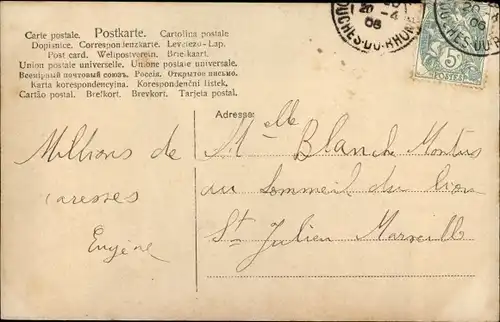 Carte postale. Postkarte. Cartolina postale
Dopisnice. Correspondenzkarte. Levelező-Lap.
Post card. Weltpostverein. Briefkaart.
Union postale universelle. Unione postale universale.
Всемірный почтовый союзъ. Россія. Открытое письмо.
Karta korespondencyjna. Korespondenční lístek.
Cartão postal. Brefkort. Brevkort. Tarjeta postal.
BOUCHES-DU-RHONE
20 -4
06
20
06
BOUCHES-DU-R
5
POSTES
Adresse:
Melle Blanche Montus
au Sommeil du lion
St Julien Marseille
Millions de
caresses
Eugène